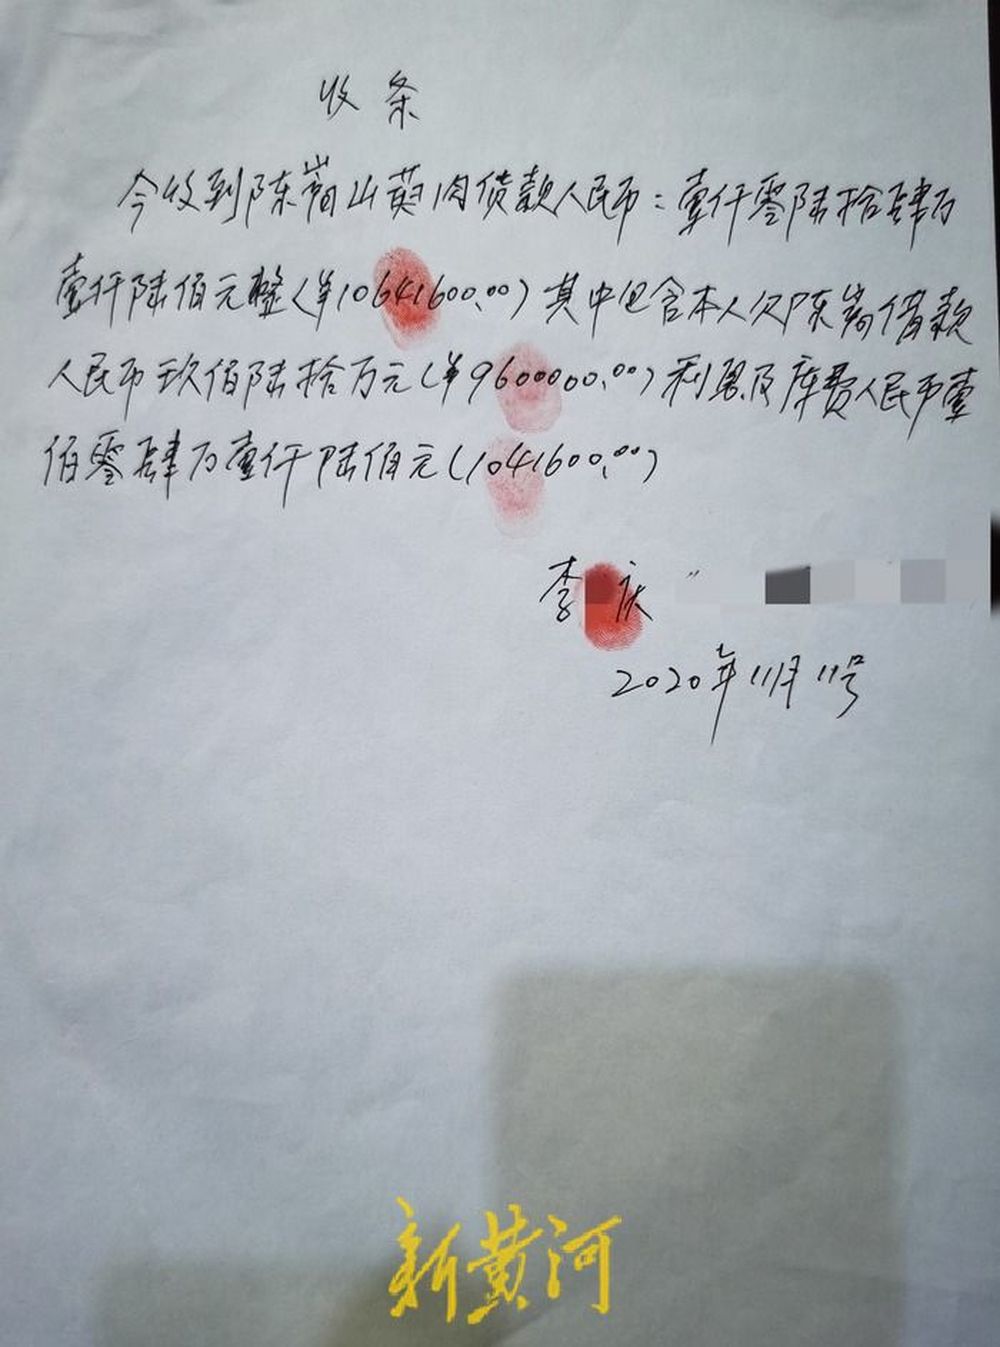 收条
今收到陈嵩山萸肉货款人民币：壹仟零陆拾肆万
壹仟陆佰元整(¥10641600.00)其中包含本人欠陈嵩借款
人民币玖佰陆拾万元(¥9600000.00)利息及库费人民币壹
佰零肆万壹仟陆佰元(1041600.00)
李 庆
2020年11月11号
新黄河